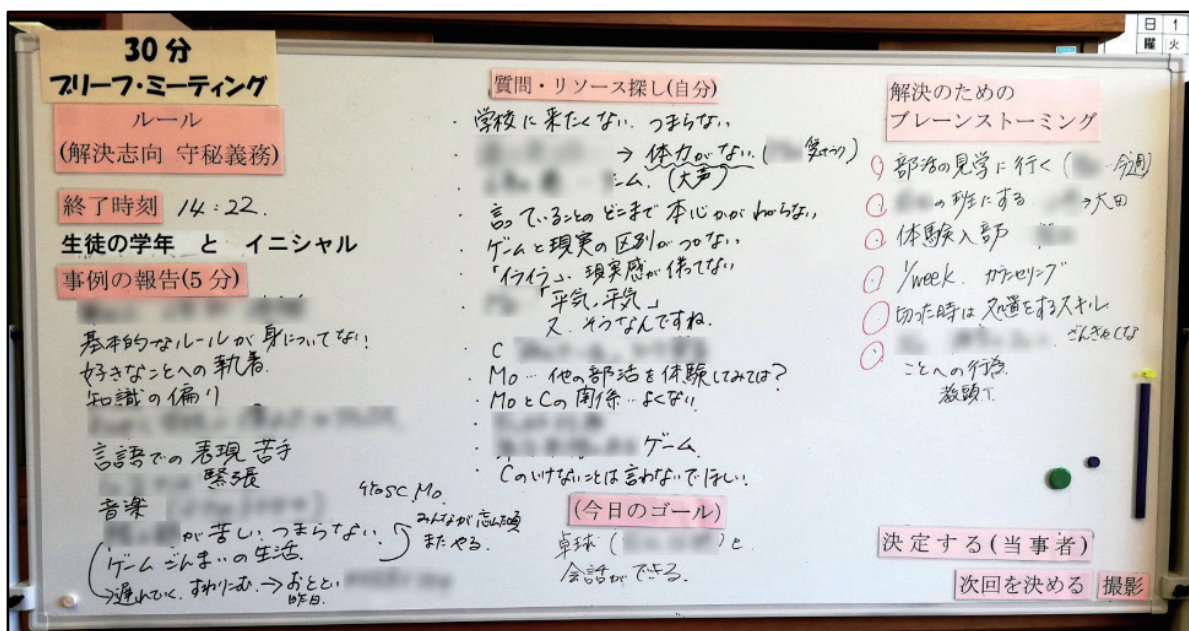 30分
ブリーフ・ミーティング
ルール
(解決志向 守秘義務)
終了時刻 14:22.
生徒の学年 と イニシャル
事例の報告(5分)
基本的なルールが身についてない!
好きなことへの執着.
知識の偏り
言語での表現 苦手
緊張
音楽
が苦しい.つまらない.
みんなが忘れた頃
またやる.
ゲームざんまいの生活.
→遅れていく.すわりこむ.→おととい
昨日.
質問・リソース探し(自分)
・学校に来たくない.つまらない
・ → 体力がない.(
ム.(大声)
・言っていることのどこまで本心かがわからない
・ゲームと現実の区別がつかない
・「イライラ」、現実感が伴ってない
・ 「平気,平気」
又、そうなんですね.
・C
・Mo…他の部活を体験してみては?
・MoとCの関係…よくない.
・ ゲーム
・Cのいけないことは言わないでほしい!
(今日のゴール)
卓球( )と
会話ができる.
解決のための
ブレーンストーミング
部活の見学に行く( 今週)
の班にする. →大田
体験入部
1/week. カウンセリング
切った時は処置をするスキル
ざんぎゃくな
ことへの行為.
教頭T.
決定する(当事者)
次回を決める
撮影
日 1
曜 火